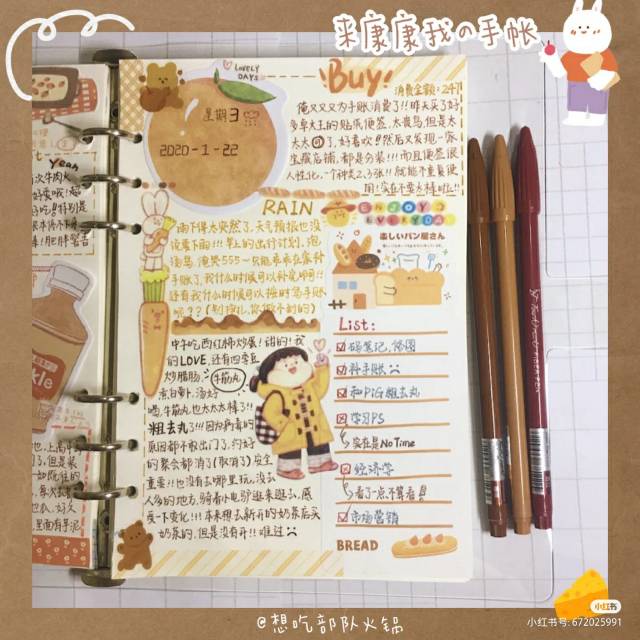 来康康我の手帐
LOVELY
DAYS
星期3
2020-1-22
Buy!
消费金额:24們
俺又又又为手账消费了!!昨天买了好
多卓大王的贴纸便签,太贵鸟但是太
太太可了,好喜欢!!然后又发现一家
宝藏店铺,都是分装!!!而且便签很
人性化,一个种类2、3张!!就能不重复使
用!实在不要太棒啦!!
RAIN
雨下得太突然了,天气预报也没
说要下雨!!!早上的出行计划,泡
汤鸟 俺哭555~只能乖乖在家补
手账了,我什么时候可以补完啊!!
还有我什么时候可以按时写手账
呢??
中午吃西红柿炒蛋!甜的!我
的LOVE,还有四季豆
炒腊肠,牛筋丸
煮白萝卜,汤好
喝,牛筋丸也太太太棒了!!
粗去丸了!!!因为病毒的
原因都不敢出门了,约好
的聚会都消了(取消了)安全
重要!!也没有去哪里玩,没去
人多的地方,骑着小电驴逛来逛去,感
受一下变化!!!本来想去新开的奶茶店买
奶茶的,但是没有开!!难过
ENJOY
EVERYDAY
楽しいパン屋さん
List:
补手账
和PIG粗去丸
学习PS
实在是No Time
经济学
看了一点不算看!!
市场营销
BREAD
@想吃部队火锅
小红书
小红书号:672025991